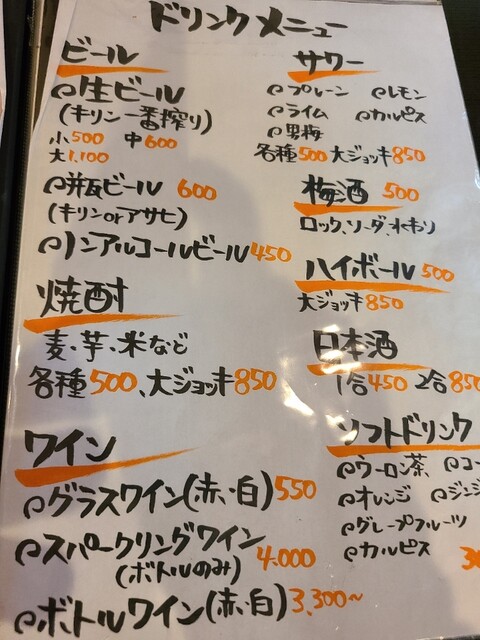 ドリンクメニュー
ビール
生ビール
(キリン一番搾り)
小500 中600
大1,100
瓶ビール 600
(キリンorアサヒ)
ノンアルコールビール450
焼酎
麦・芋・米など
各種500、大ジョッキ850
ワイン
グラスワイン(赤・白)550
スパークリングワイン
(ボトルのみ) 4.000
ボトルワイン(赤・白)3,300~
サワー
プレーン レモン
ライム カルピス
男梅
各種500 大ジョッキ850
梅酒 500
ロック、ソーダ、水わり
ハイボール 500
大ジョッキ850
日本酒
1合450 2合850
ソフトドリンク
ウーロン茶 コー
オレンジ ジンジ
グレープフルーツ
カルピス